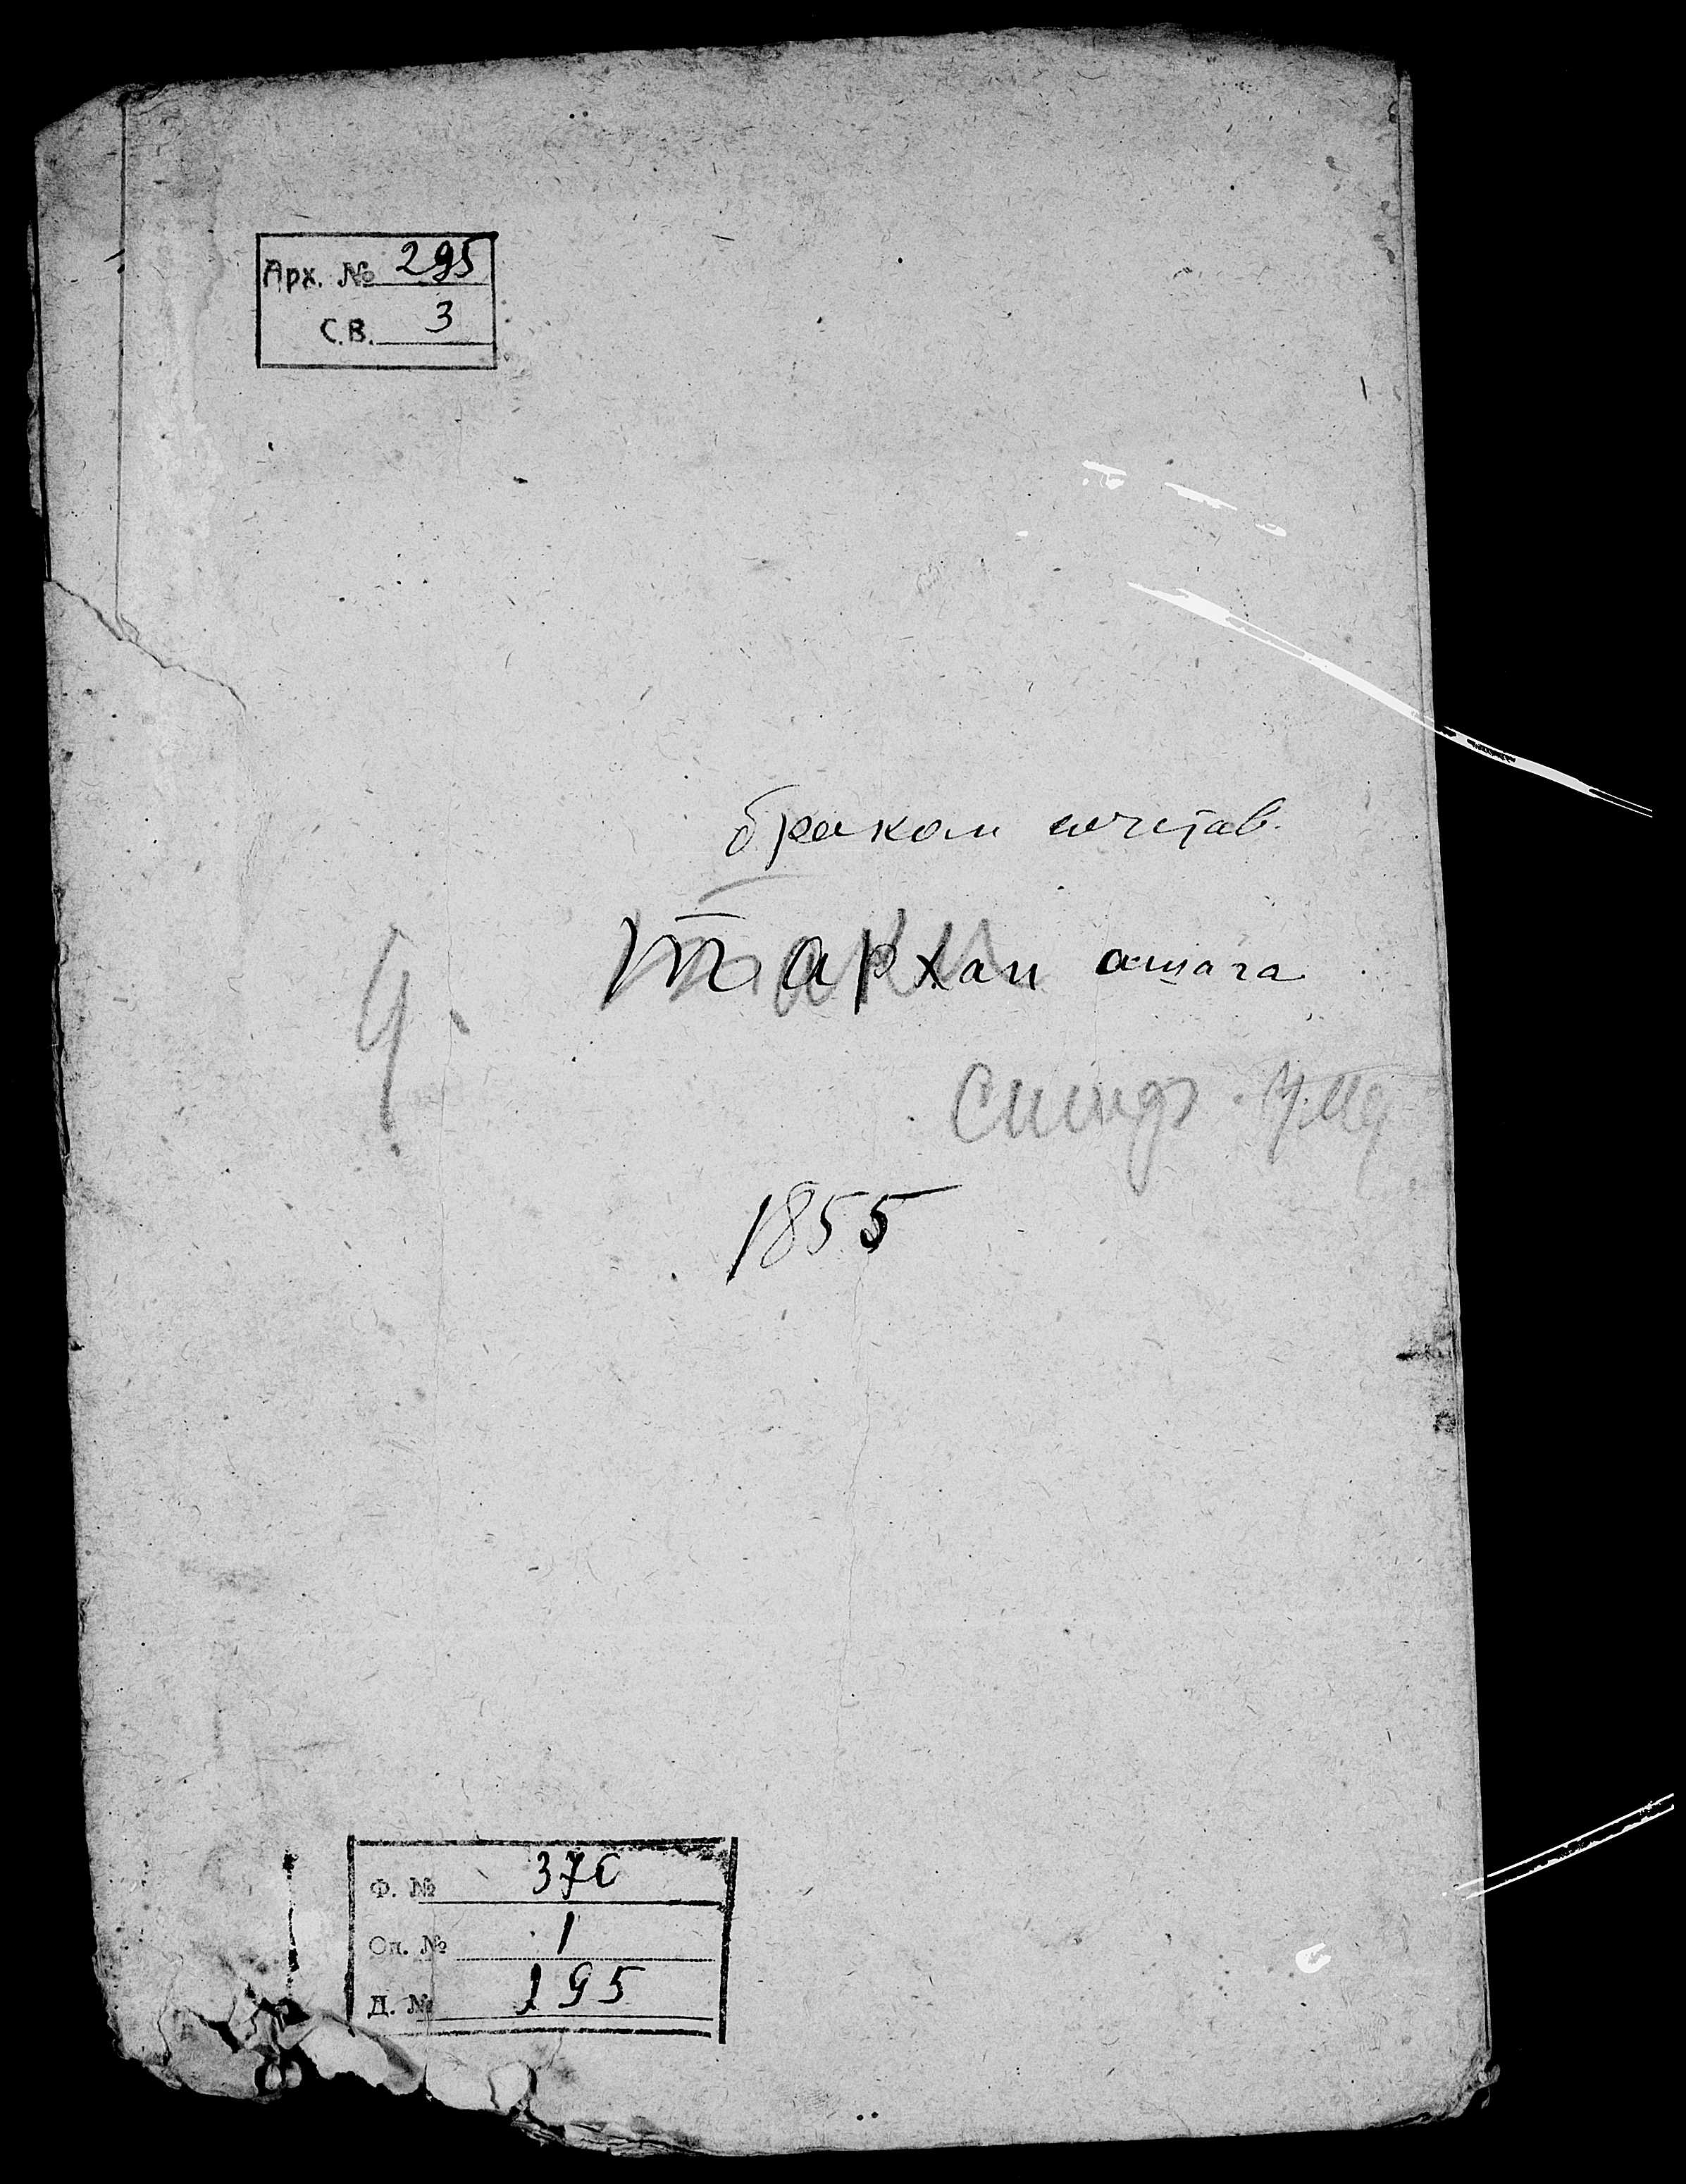 Арх. № 295
С.В. 3
браком сочетав.
Тархан ашага
4.
Симф. у.
1855
Ф. № 370
Оп. № 1
Д. № 195